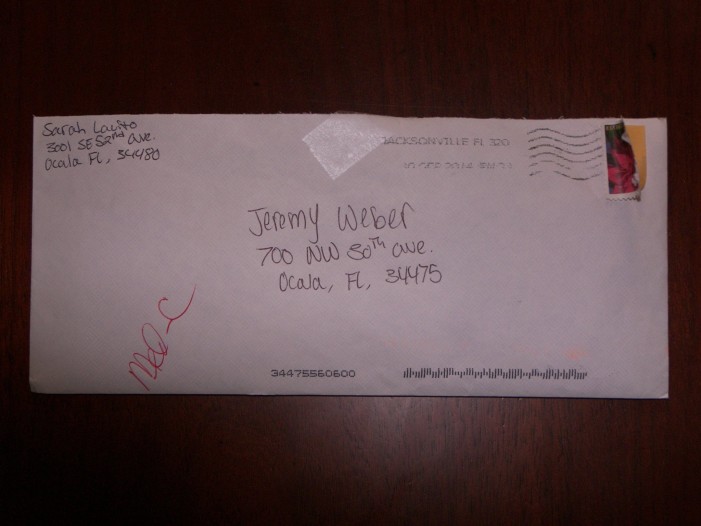 Sarah
3001 SE 52nd Ave.
Ocala FL, 34480
JACKSONVILLE FL 320
Jeremy Weber
700 NW 30th Ave.
Ocala, FL, 34475
34475560600